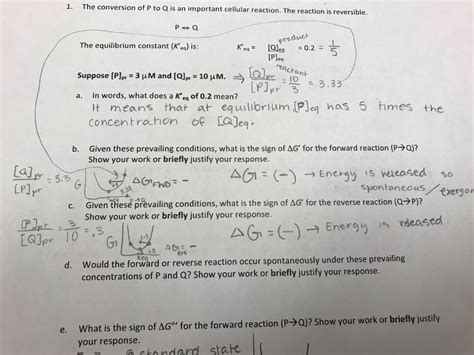 1. The conversion of P to Q is an important cellular reaction. The reaction is reversible.
P ⇔ Q
product
The equilibrium constant (K'eq) is: K'eq = [Q]eq / [P]eq = 0.2 = 1/5
reactant
Suppose [P]pr = 3 μM and [Q]pr = 10 μM. ⇒ [Q]pr / [P]pr = 10/3 = 3.33
a. In words, what does a K'eq of 0.2 mean?
It means that at equilibrium [P]eq has 5 times the
concentration of [Q]eq.
b. Given these prevailing conditions, what is the sign of ΔG' for the forward reaction (P→Q)?
Show your work or briefly justify your response.
[Q]pr / [P]pr = 3.3 G ΔG FWD = − ΔG = (−) → Energy is released so
spontaneous / exergon
c. Given these prevailing conditions, what is the sign of ΔG' for the reverse reaction (Q→P)?
Show your work or briefly justify your response.
[P]pr / [Q]pr = 3/10 = .3 G (−) ΔG = − ΔG = (−) → Energy is released
d. Would the forward or reverse reaction occur spontaneously under these prevailing
concentrations of P and Q? Show your work or briefly justify your response.
e. What is the sign of ΔG°' for the forward reaction (P→Q)? Show your work or briefly justify
your response.
standard state